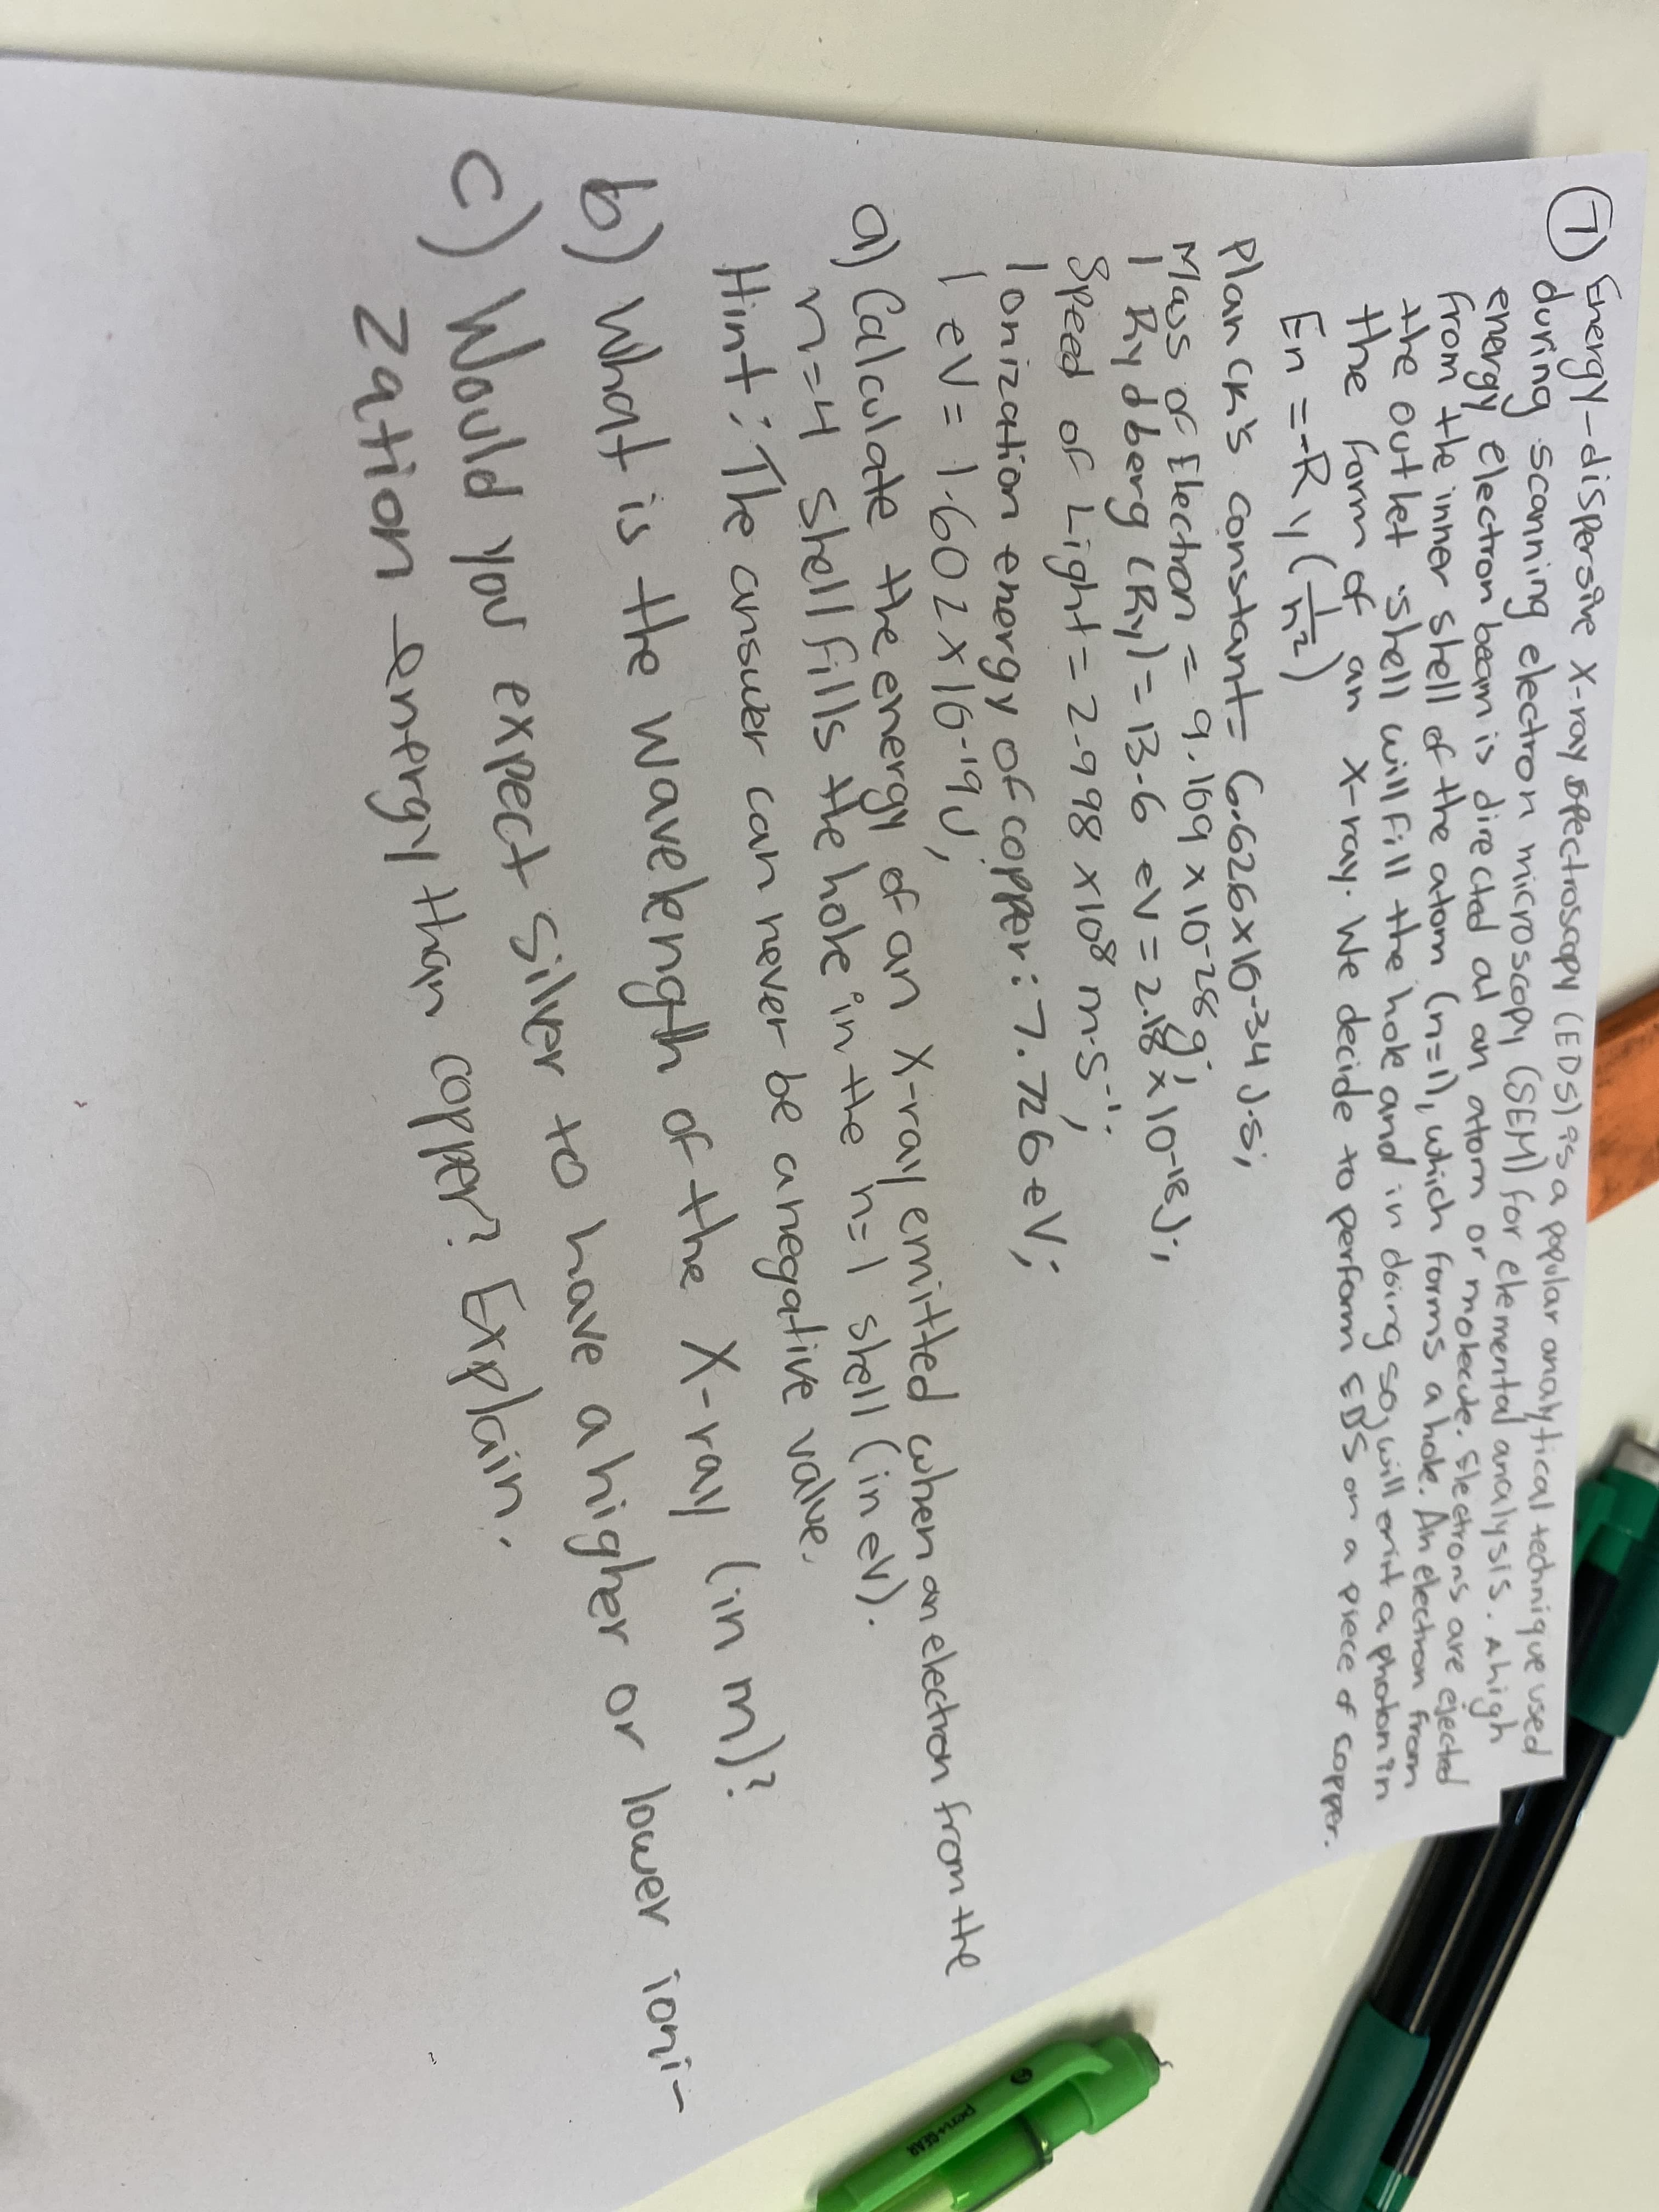 7) Energy-dispersive x-ray spectroscopy (EDS) is a popular analytical technique used
during scanning electron microscopy (SEM) for elemental analysis. A high
energy electron beam is directed at an atom or molecule. Electrons are ejected
from the inner shell of the atom (n=1), which forms a hole. An electron from
the outlet shell will fill the hole and in doing so, will emit a photon in
the form of an x-ray. We decide to perform EDS on a piece of copper.
En = -Ry(1/n²)
Planck's constant = 6.626x10-34 J.s;
Mass of Electron = 9.109 x 10-28 g;
1 Rydberg (Ry) = 13.6 eV = 2.18 x 10-18 J;
Speed of Light = 2.998 x 10⁸ m.s⁻¹;
Ionization energy of copper: 7.726 eV;
1 eV = 1.602 x 10-19 J;
a) Calculate the energy of an x-ray emitted when an electron from the
n=4 shell fills the hole in the n=1 shell (in eV).
Hint: The answer can never be a negative value.
b) What is the wavelength of the x-ray (in m)?
c) Would you expect silver to have a higher or lower ioni-
zation energy than copper? Explain.
pen+GEAR